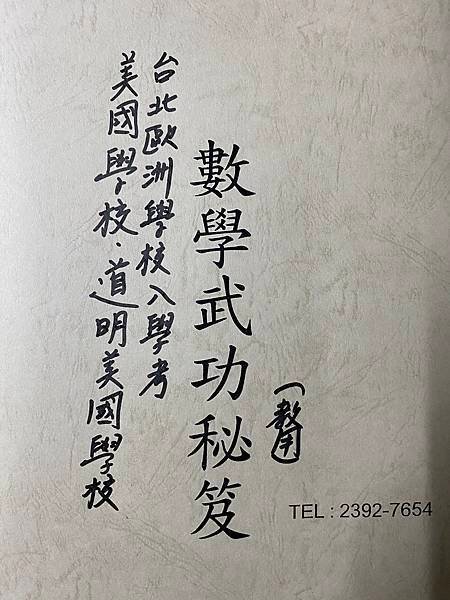 數學武功秘笈
台北歐洲學校入學考
美國學校、道明美國學校
TEL : 2392-7654